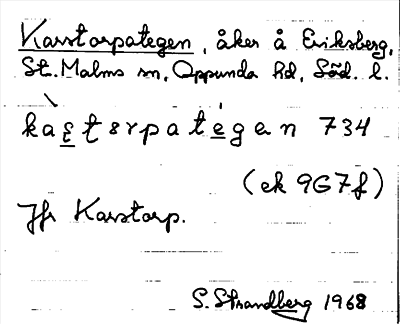 Karstorpategen, åker å Eriksberg,
St. Malms sn, Oppunda hd, Söd. l.
kaṣṭɘrpategen 734
(ek 9G7f)
Jfr Karstorp.
S. Strandberg 1968